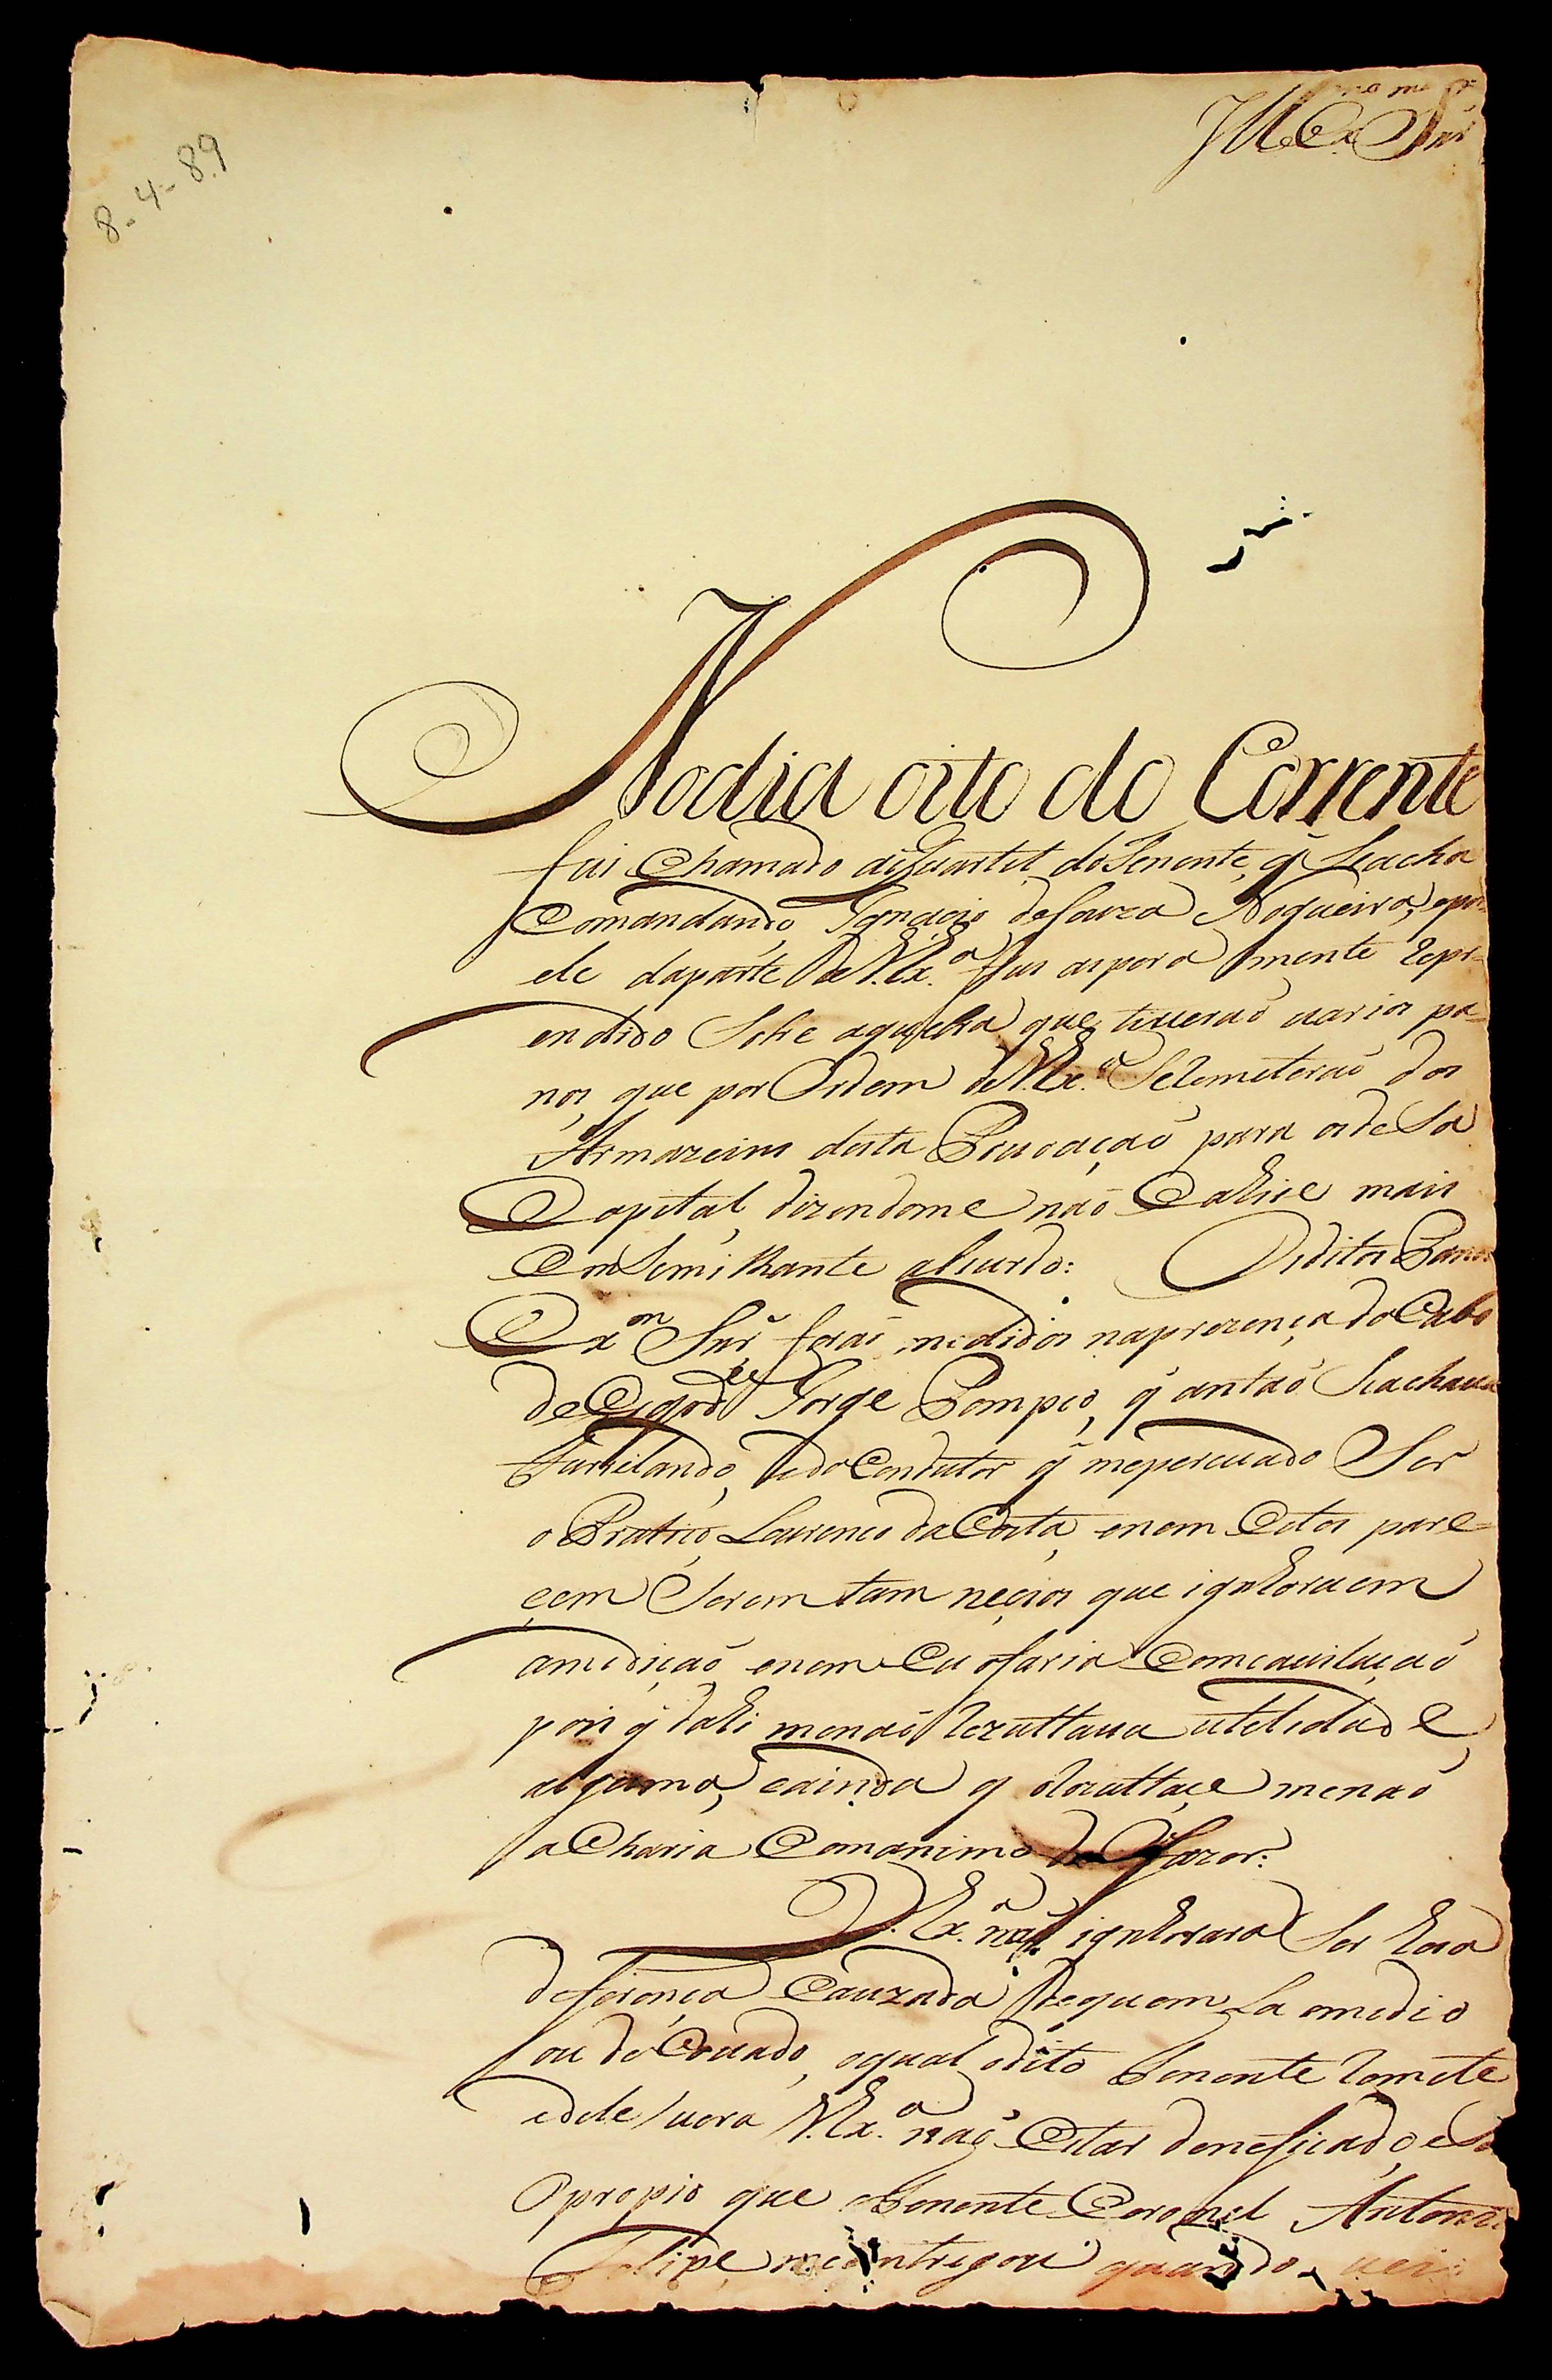 8-4-89
Ill.mo Ex.mo Snr
No dia oito do Corrente
fui Chamado ao Quartel do Tenente, q̃ Seacha
Comandando Ignacio de Souza Nogueira, epor
ele daparte de V. Ex.ª fui aspera mente repr=
endido Sobre aquebra que tiverao varios pa=
nos, que por Ordem de V. Ex.ª Se remeterao dos
Armazeins desta Povoaçaõ para os de Sa
Capital, dizendome naõ Cahise mais
em Semilhante absurdo: Os ditos Panos
Ex.mo Snr̃ foraõ medidos naprezença do Cabo
de Esqdr.ª Jorge Pompeo, q̃ antaõ Seachava
Fielando, e do Condutor q̃ mepersuado Ser
o Pratico Lourenço da Costa, enem Estes pare=
çem Serem tam neçios que ignhorvem
amediçaõ enem Eu ofaria Comcavilaçaõ
pois q̃ dahi menaõ rezultava utelidade
alguma, eainda q̃ Rezultaçe menaõ
aCharia Comanimo de ofazer:
V. Ex.ª naõ ignhorara Ser hera
deferença Cauzada dequem la omedio
ou do Covado, oqual odito Tenente remete
edele vera V. Ex.ª naõ Estar deneficado, e
Opropio que oTenente Coronel Antonio
Felipe meentregou quando vei